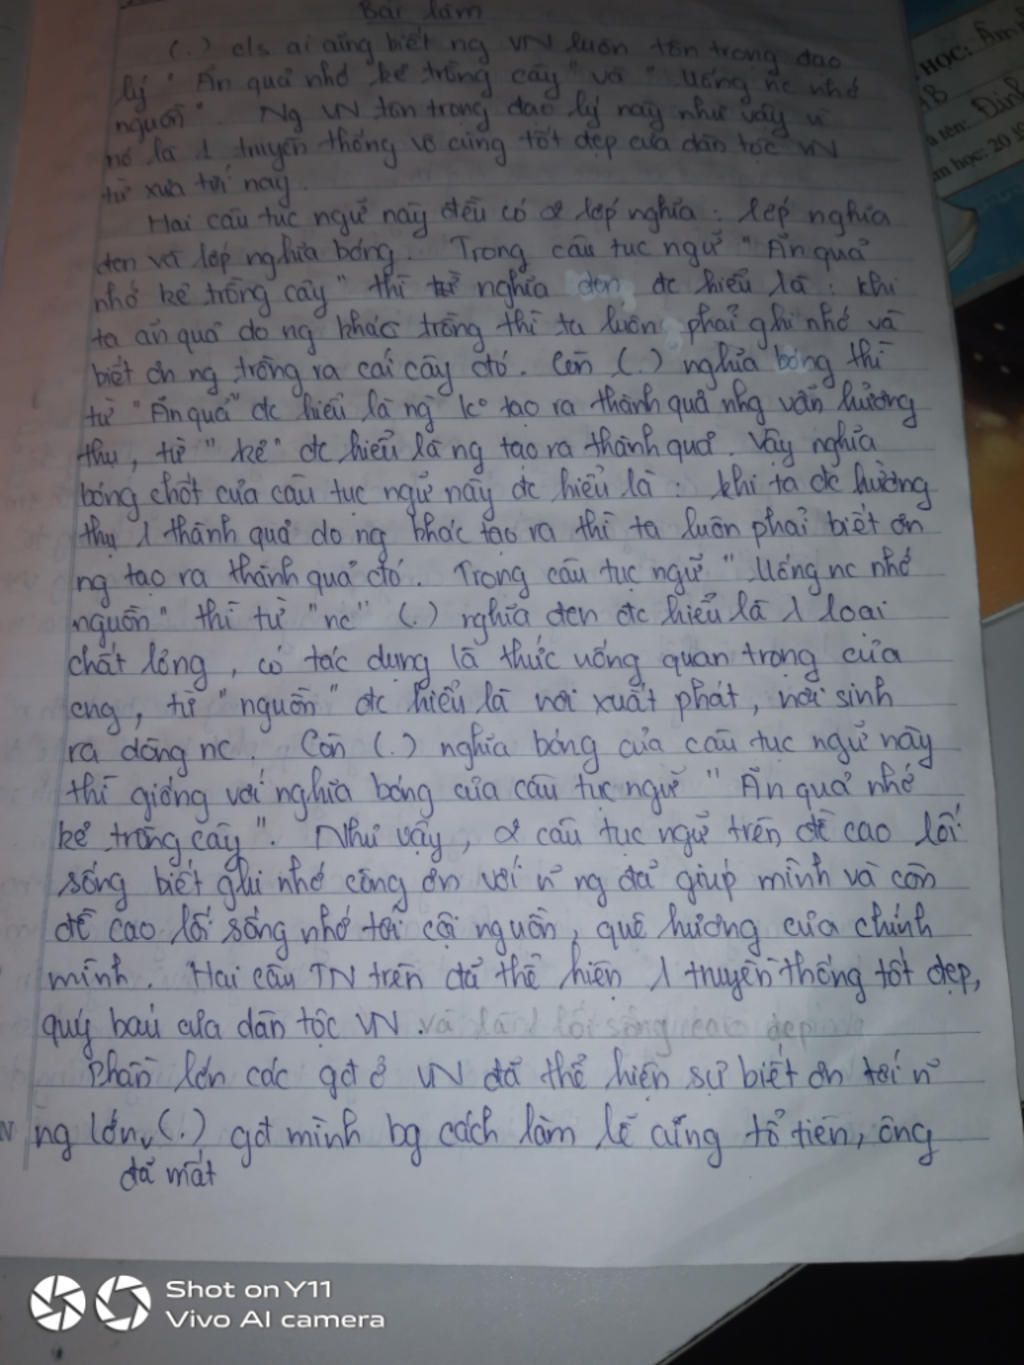 Bài làm
(.) c/s ai cũng biết ng VN luôn tôn trọng đạo
lý "Ăn quả nhớ kẻ trồng cây" và "Uống nc nhớ
nguồn". Ng VN tôn trọng đạo lý này như vậy vì
nó là 1 truyền thống vô cùng tốt đẹp của dân tộc VN
từ xưa tới nay.
Hai câu tục ngữ này đều có 2 lớp nghĩa: lớp nghĩa
đen và lớp nghĩa bóng. Trong câu tục ngữ "Ăn quả
nhớ kẻ trồng cây" thì nghĩa đen đc hiểu là: khi
ta ăn quả do ng khác trồng thì ta luôn phải ghi nhớ và
biết ơn ng trồng ra cái cây đó. Còn (.) nghĩa bóng thì
từ "Ăn quả" đc hiểu là ng ko tạo ra thành quả nhg vẫn hưởng
thụ, từ "kẻ" đc hiểu là ng tạo ra thành quả. Vậy nghĩa
bóng chốt của câu tục ngữ này đc hiểu là: khi ta đc hưởng
thụ 1 thành quả do ng khác tạo ra thì ta luôn phải biết ơn
ng tạo ra thành quả đó. Trong câu tục ngữ "Uống nc nhớ
nguồn" thì từ "nc" (.) nghĩa đen đc hiểu là 1 loại
chất lỏng, có tác dụng là thức uống quan trọng của
cng, từ "nguồn" đc hiểu là nơi xuất phát, nơi sinh
ra dòng nc. Còn (.) nghĩa bóng của câu tục ngữ này
thì giống với nghĩa bóng của câu tục ngữ "Ăn quả nhớ
kẻ trồng cây". Như vậy, 2 câu tục ngữ trên đề cao lối
sống biết ghi nhớ công ơn với n~ ng đã giúp mình và còn
đề cao lối sống nhớ tới cội nguồn, quê hương của chính
mình. Hai câu TN trên đã thể hiện 1 truyền thống tốt đẹp,
quý báu của dân tộc VN. và là 1 lối sống cao đẹp
Phần lớn các gđ ở VN đã thể hiện sự biết ơn tới n~
ng lớn (.) gđ mình bg cách làm lễ cúng tổ tiên, ông
đã mất
HỌC:
B
tên: Đinh
m học: 20
Shot on Y11
Vivo AI camera